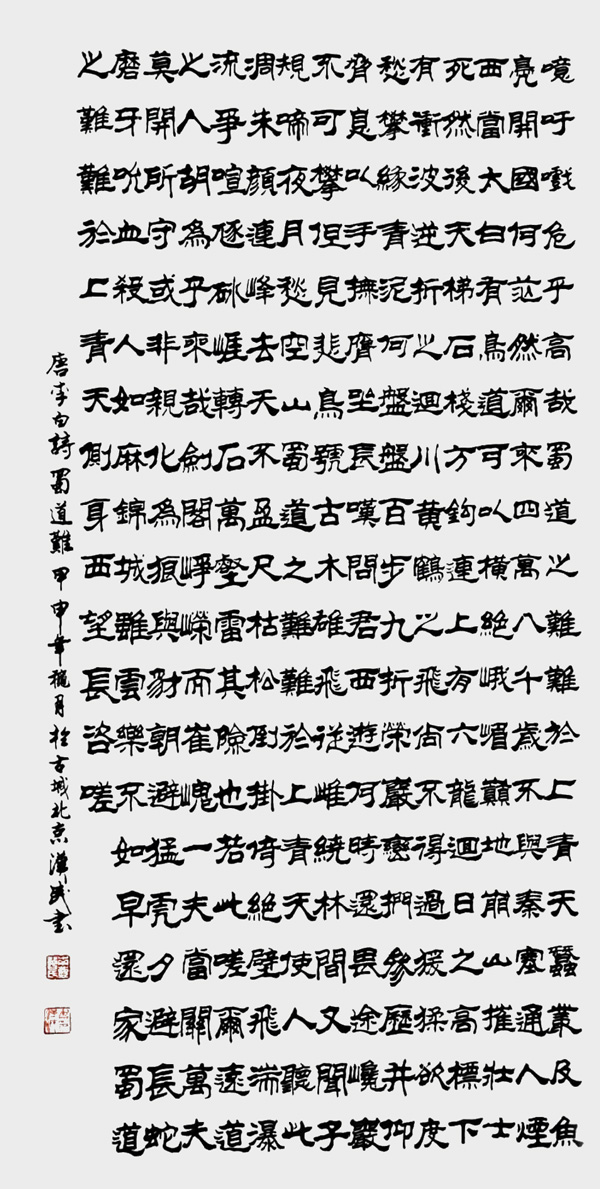 噫吁戲危乎高哉蜀道之難難於上青天蠶叢及魚
鳧開國何茫然爾來四萬八千歲不與秦塞通人煙
西當太白有鳥道可以橫絕峨嵋巔地崩山摧壯士
死然後天梯石棧方鉤連上有六龍迴日之高標下
有衝波逆折之迴川黃鶴之飛尚不得過猿猱欲度
愁攀緣青泥何盤盤百步九折縈巖巒捫參歷井仰
脅息以手撫膺坐長嘆問君西遊何時還畏途巉巖
不可攀但見悲鳥號古木雄飛從雌繞林間又聞子
規啼夜月愁空山蜀道之難難於上青天使人聽此
凋朱顏連峰去天不盈尺枯松倒掛倚絕壁飛湍瀑
流爭喧豗砯崖轉石萬壑雷其險也若此嗟爾遠道
之人胡為乎來哉劍閣崢嶸而崔嵬一夫當關萬夫
莫開所守或非親化為狼與豺朝避猛虎夕避長蛇
磨牙吮血殺人如麻錦城雖雲樂不如早還家蜀道
之難難於上青天側身西望長咨嗟
唐李白詩蜀道難甲申年穐月於古城北京漢書